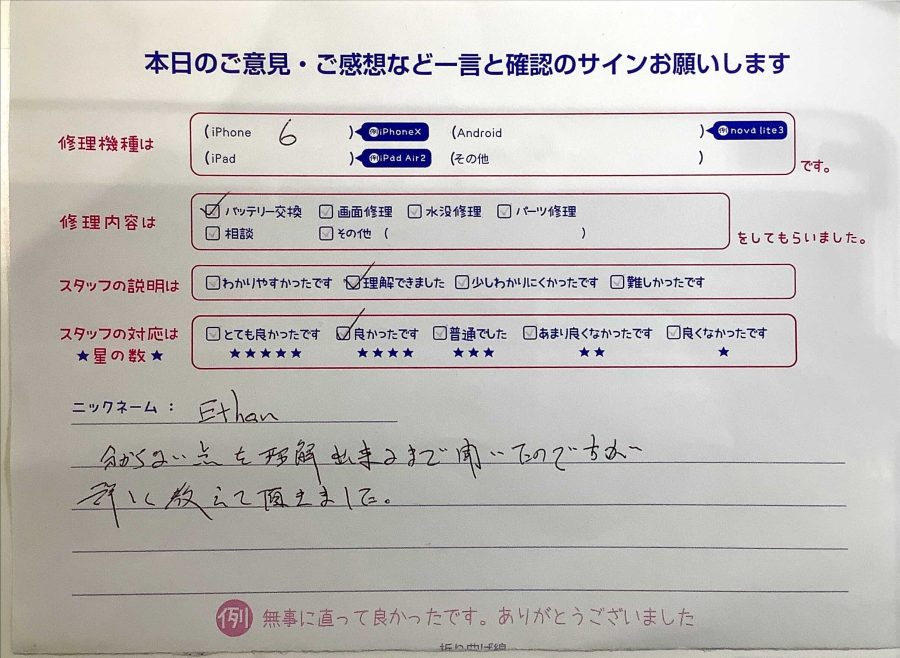 本日のご意見・ご感想など一言と確認のサインお願いします
修理機種は (iPhone 6 ) 例iPhoneX (Android ) 例nova lite3
(iPad ) 例iPad Air2 (その他 ) です。
修理内容は バッテリー交換 画面修理 水没修理 パーツ修理
相談 その他 ( ) をしてもらいました。
スタッフの説明は わかりやすかったです 理解できました 少しわかりにくかったです 難しかったです
スタッフの対応は とても良かったです 良かったです 普通でした あまり良くなかったです 良くなかったです
★星の数★ ★★★★★ ★★★★ ★★★ ★★ ★
ニックネーム： Ethan
分からない点を理解出来るまで聞いたのですが
詳しく教えて頂きました。
例 無事に直って良かったです。ありがとうございました
折り曲げ線